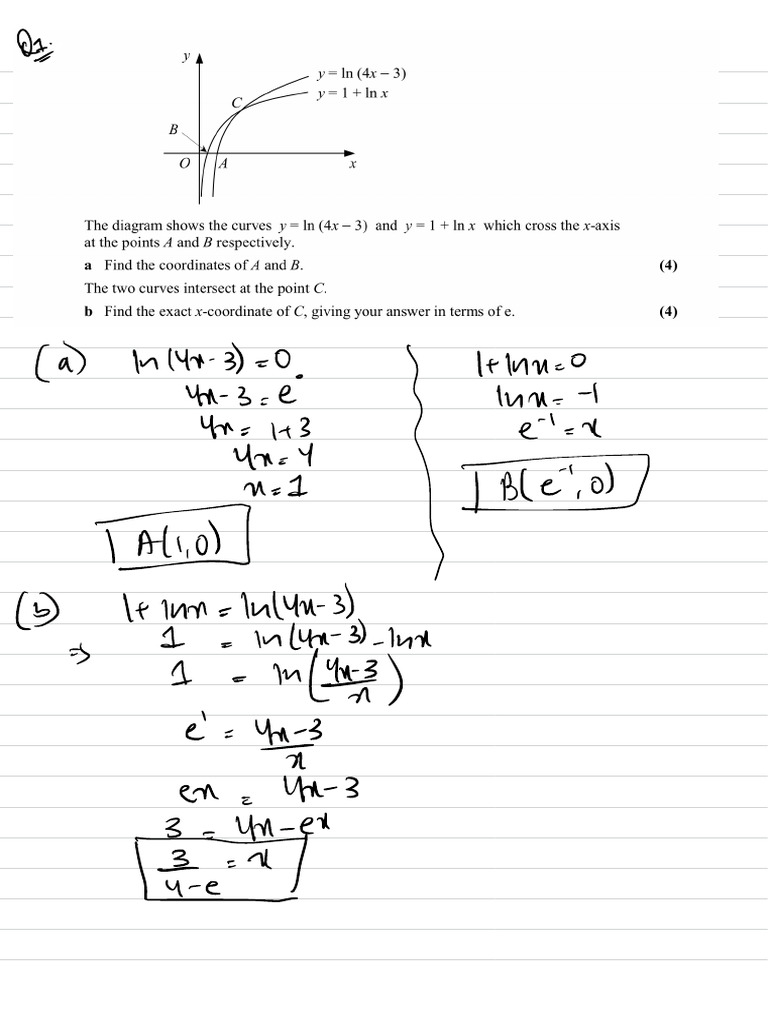 Q1.
y
y = ln (4x – 3)
y = 1 + ln x
C
B
O A x
The diagram shows the curves y = ln (4x – 3) and y = 1 + ln x which cross the x-axis
at the points A and B respectively.
a Find the coordinates of A and B. (4)
The two curves intersect at the point C.
b Find the exact x-coordinate of C, giving your answer in terms of e. (4)
(a) ln(4x-3) = 0
4x-3 = e⁰
4x = 1+3
4x = 4
x = 1
A(1,0)
1+lnx = 0
lnx = -1
e⁻¹ = x
B(e⁻¹, 0)
(b) 1+ lnx = ln(4x-3)
⇒ 1 = ln(4x-3) - lnx
1 = ln((4x-3)/x)
e¹ = (4x-3)/x
ex = 4x-3
3 = 4x-ex
3/(4-e) = x